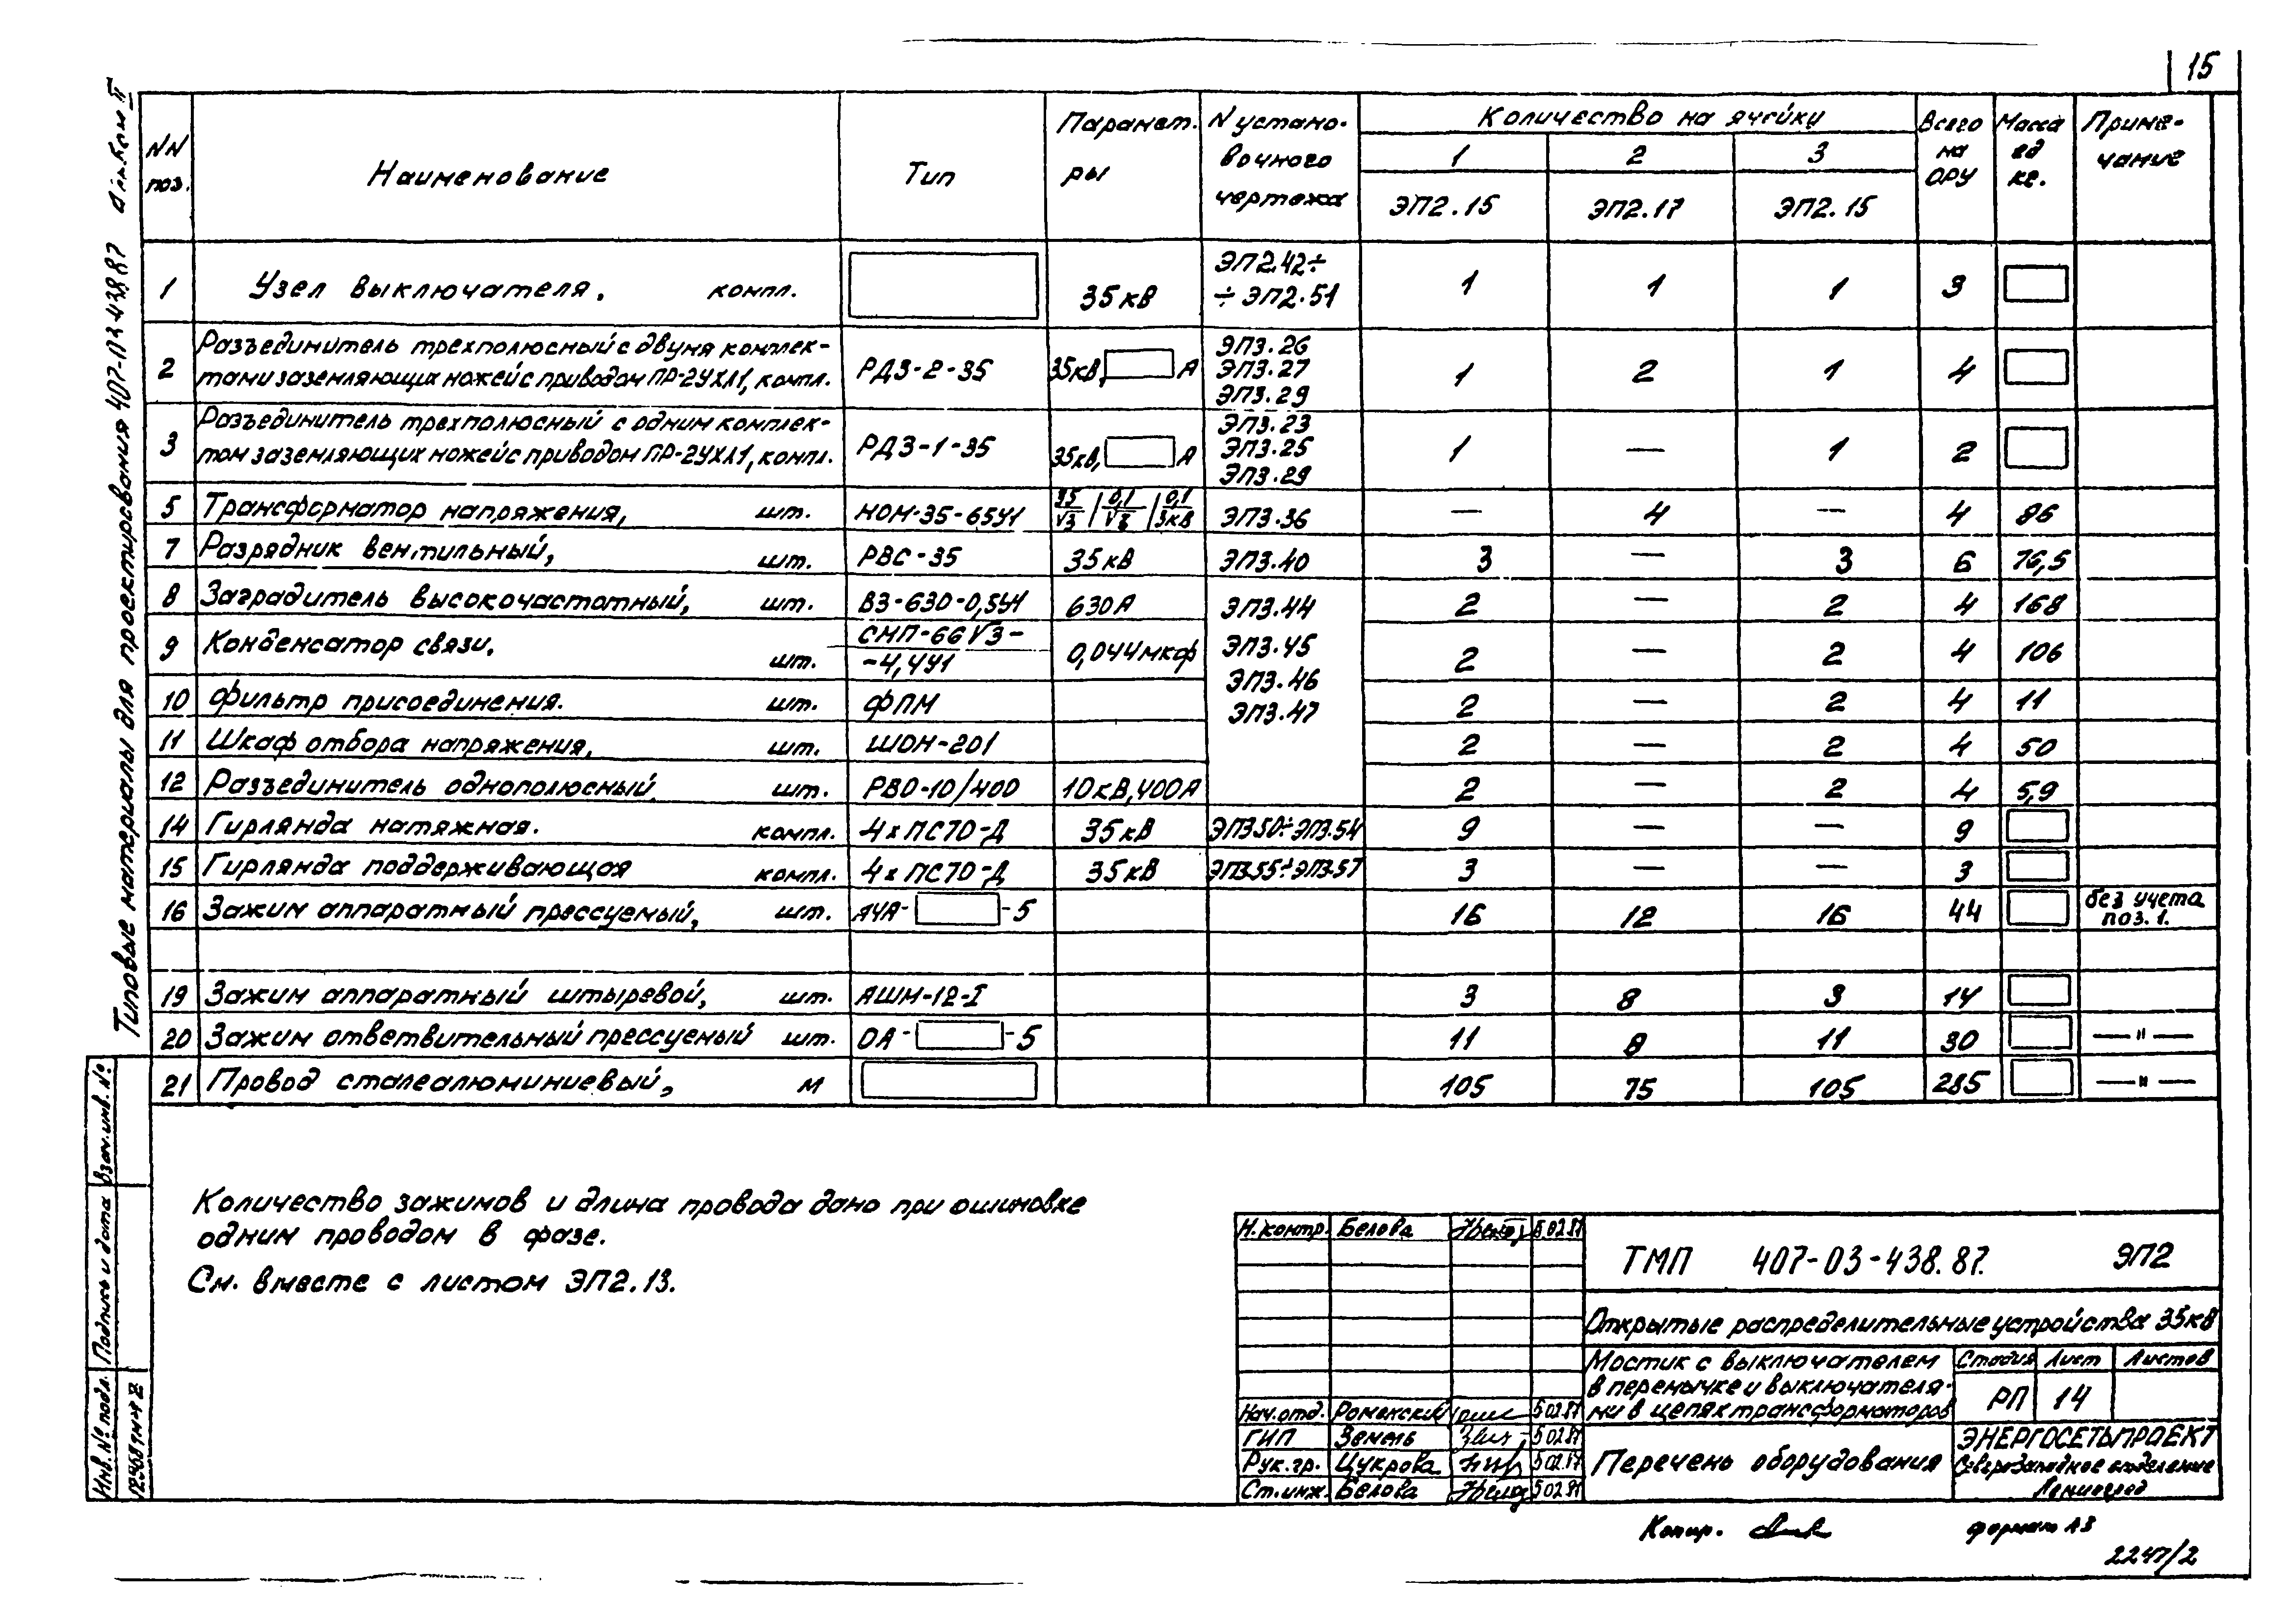 15
Типовые материалы для проектирования 407-03-438.87 Альбом II
NN поз. Наименование Тип Парамет-ры N устано-вочного чертежа Количество на ячейку Всего на ОРУ Масса ед кг. Приме-чание
1 2 3
ЭП2.15 ЭП2.17 ЭП2.15
1 Узел выключателя, компл. 35кВ ЭП2.42÷ ÷ЭП2.51 1 1 1 3
2 Разъединитель трехполюсный с двумя комплек-
тами заземляющих ножей с приводом ПР-2УХЛ1, компл. РДЗ-2-35 35кВ, А ЭП3.26 ЭП3.27 ЭП3.29 1 2 1 4
3 Разъединитель трехполюсный с одним комплек-
том заземляющих ножей с приводом ПР-2УХЛ1, компл. РДЗ-1-35 35кВ, А ЭП3.23 ЭП3.25 ЭП3.29 1 — 1 2
5 Трансформатор напряжения, шт. НОМ-35-65У1 35/√3 / 0,1/√3 / 0,1/3кВ ЭП3.36 — 4 — 4 86
7 Разрядник вентильный, шт. РВС-35 35кВ ЭП3.40 3 — 3 6 76,5
8 Заградитель высокочастотный, шт. ВЗ-630-0,5У1 630А ЭП3.44 2 — 2 4 168
9 Конденсатор связи, шт. СМП-66√3-
-4,4У1 0,044мкф ЭП3.45 2 — 2 4 106
10 Фильтр присоединения. шт. ФПМ ЭП3.46 2 — 2 4 11
ЭП3.47
11 Шкаф отбора напряжения, шт. ШОН-201 2 — 2 4 50
12 Разъединитель однополюсный шт. РВО-10/400 10кВ,400А 2 — 2 4 5,9
14 Гирлянда натяжная. компл. 4хПС70-Д 35кВ ЭП3.50÷ЭП3.54 9 — — 9
15 Гирлянда поддерживающая компл. 4хПС70-Д 35кВ ЭП3.55÷ЭП3.57 3 — — 3
16 Зажим аппаратный прессуемый, шт. А4А- -5 16 12 16 44 без учета поз. 1.
19 Зажим аппаратный штыревой, шт. АШМ-12-I 3 8 3 14
20 Зажим ответвительный прессуемый шт. ОА- -5 11 8 11 30 —"—
21 Провод сталеалюминиевый, м 105 75 105 285 —"—
Количество зажимов и длина провода дано при ошиновке
одним проводом в фазе.
См. вместе с листом ЭП2.13.
Взам. инв. №
Подпись и дата
Инв. № подл.
Н.контр. Белова 5.02.87
ТМП 407-03-438.87. ЭП2
Открытые распределительные устройства 35кВ
Мостик с выключателем
в перемычке и выключателя-
ми в цепях трансформаторов
Стадия Лист Листов
РП 14
Нач.отд. Роменский 5.02.87
ГИП Земель 5.02.87
Рук.гр. Цукрова 5.02.87
Ст.инж. Белова 5.02.87
Перечень оборудования
ЭНЕРГОСЕТЬПРОЕКТ
Северо-Западное отделение
Ленинград
Копир. формат А3
2247/2